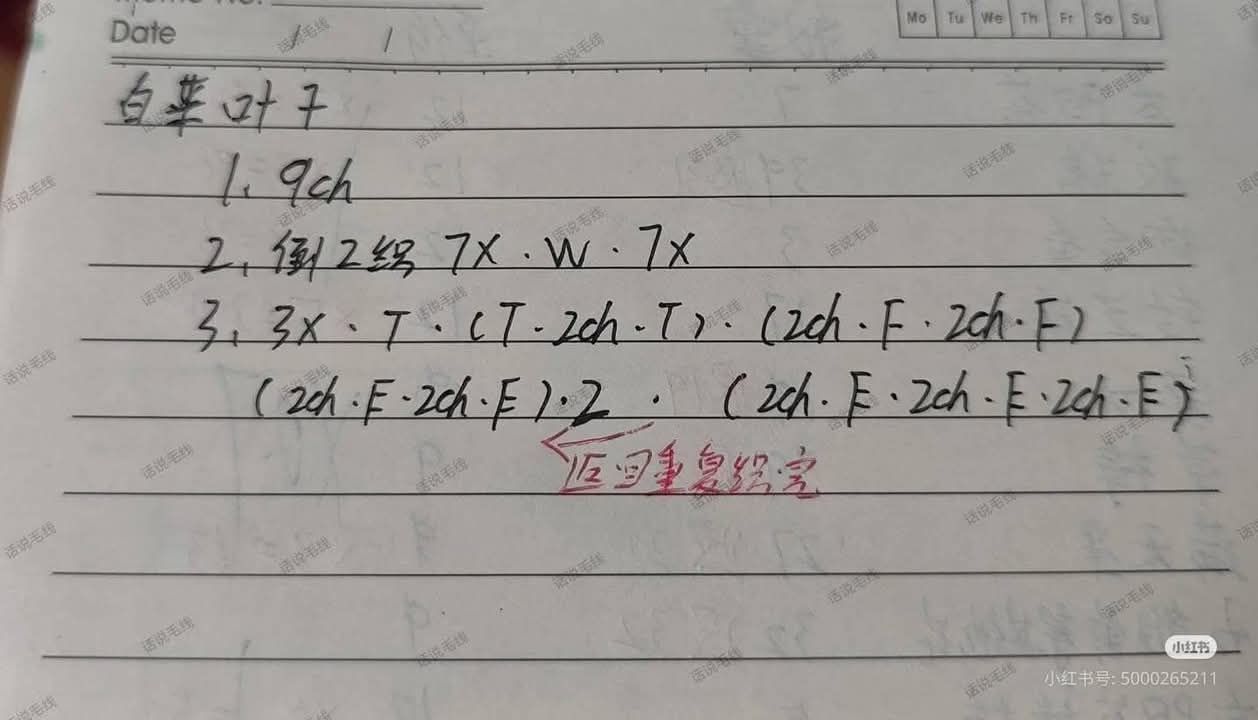 Date / /
Mo Tu We Th Fr Sa Su
白菜叶子
1. 9ch
2. 倒2织 7X · W · 7X
3. 3X · T · (T · 2ch · T) · (2ch · F · 2ch · F)
(2ch · E · 2ch · E) · 2 · (2ch · E · 2ch · E · 2ch · E)
返回重复织完
话说毛线
小红书
小红书号: 5000265211